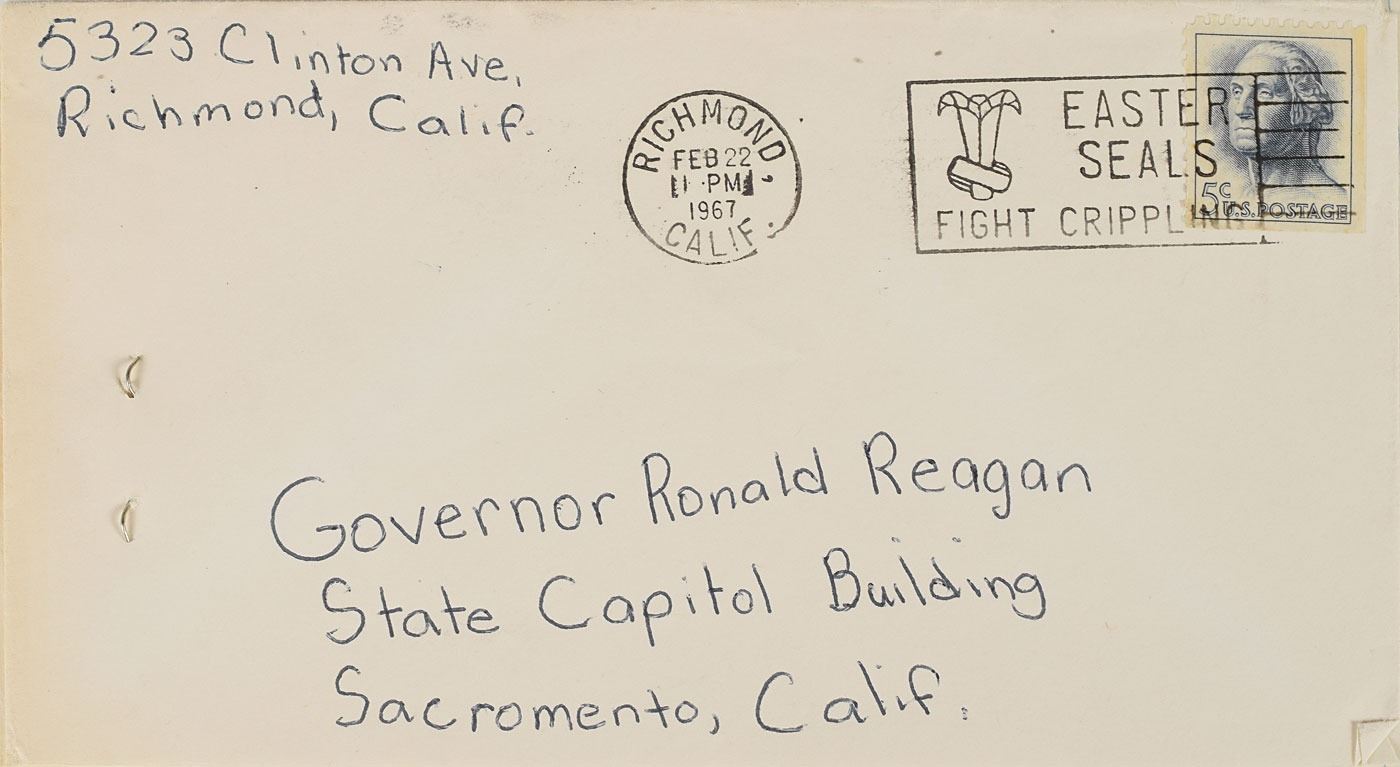 5323 Clinton Ave,
Richmond, Calif.
RICHMOND,
FEB 22
PM
1967
CALIF.
EASTER
SEALS
FIGHT CRIPPLING
5c
U.S. POSTAGE
Governor Ronald Reagan
State Capitol Building
Sacromento, Calif.